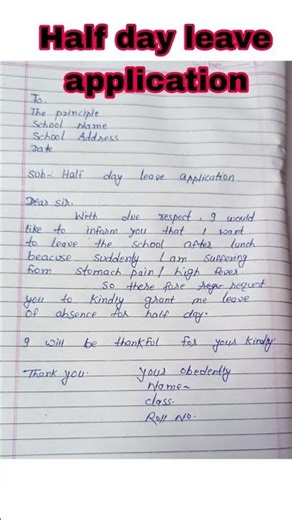 Half day leave
application
To.
The principle
School Name
School Address
Date
Sub-: Half day leave application
Dear sir.
With due respect, I would
like to inform you that I want
to leave the school after lunch
beacuse suddenly I am suffering
from stomach pain / high fever
So there fore request
you to kindly grant me leave
Of absence for half day.
I will be thankful for your kindly
Thank you. your obedently
Name-
class.
Roll No.